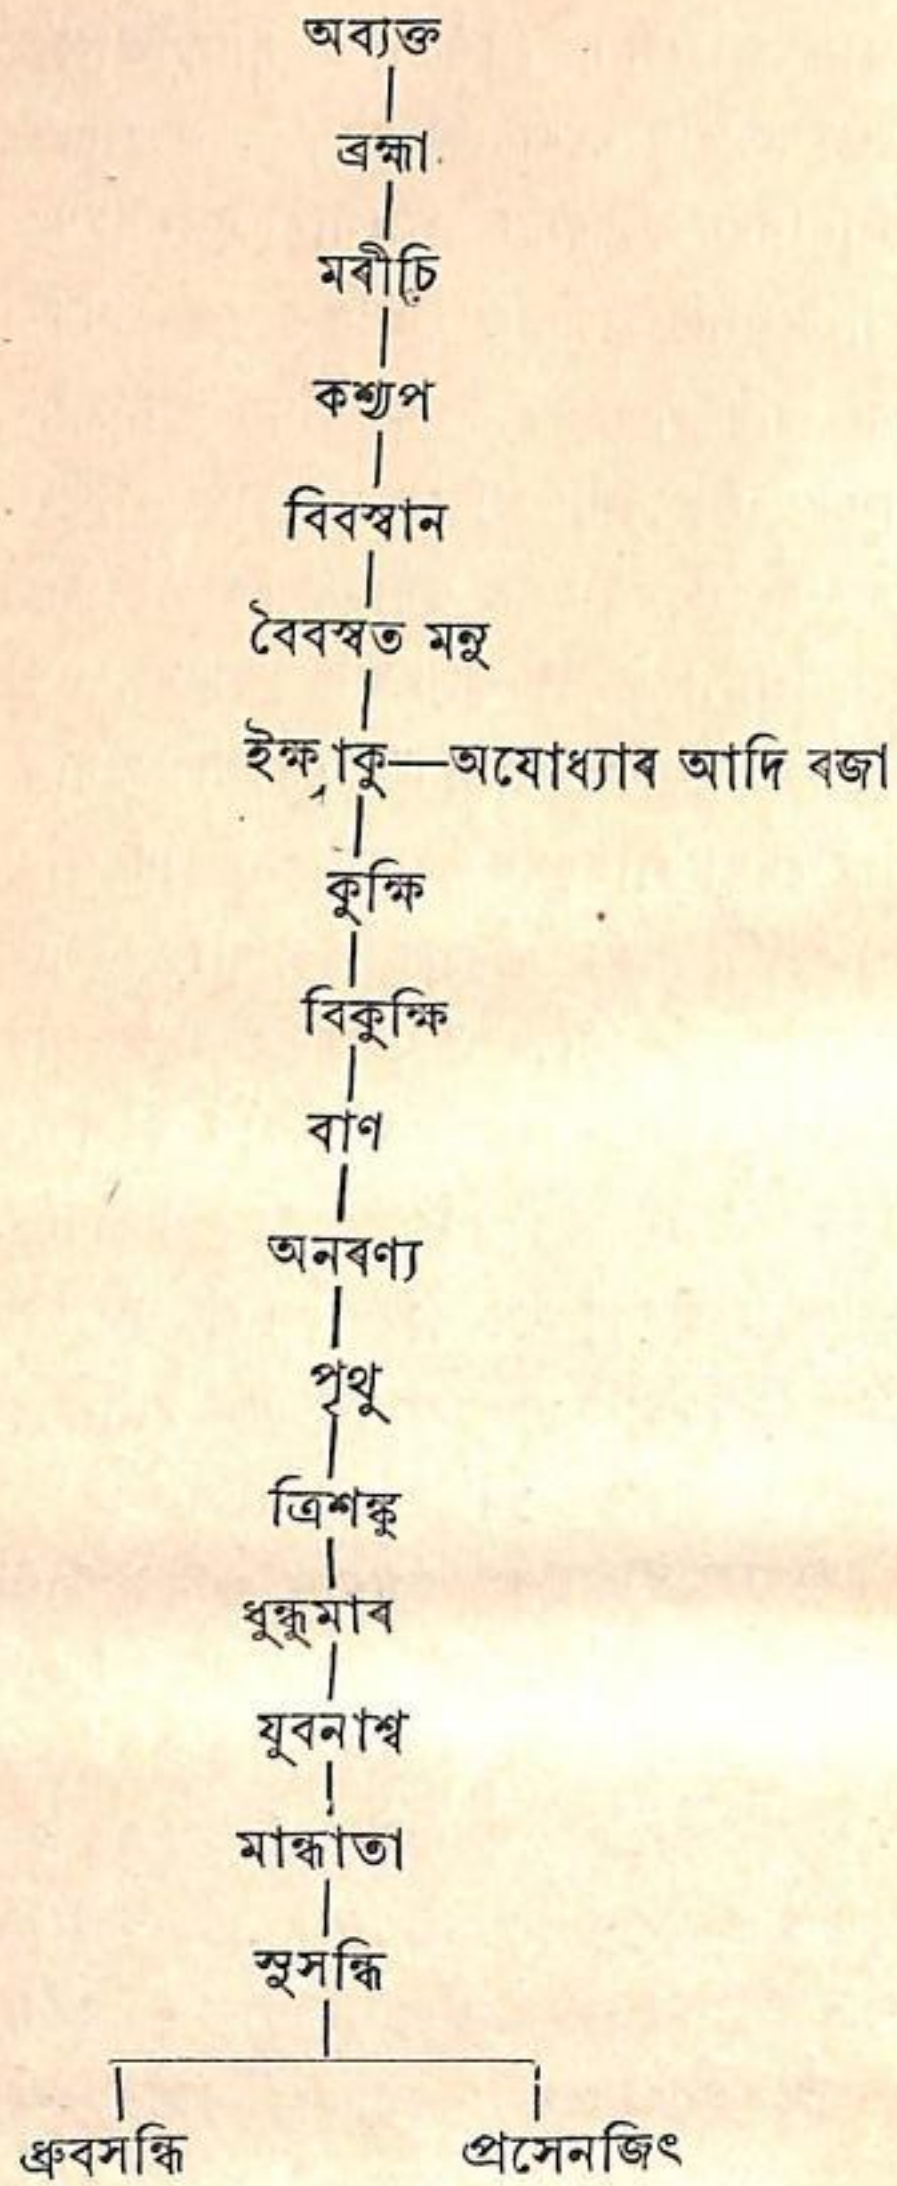 অব্যক্ত
ব্ৰহ্মা
মৰীচি
কশ্যপ
বিবস্বান
বৈবস্বত মনু
ইক্ষ্বাকু—অযোধ্যাৰ আদি ৰজা
কুক্ষি
বিকুক্ষি
বাণ
অনৰণ্য
পৃথু
ত্ৰিশঙ্কু
ধুন্ধুমাৰ
যুবনাশ্ব
মান্ধাতা
সুসন্ধি
ধ্ৰুবসন্ধি প্ৰসেনজিৎ